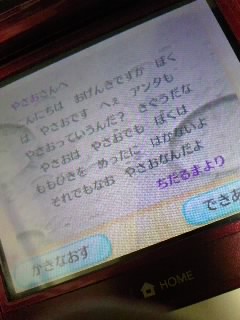 やさおさんへ
んにちは　おげんきですか　ぼく
は　やさおです　へぇ　アンタも
やさおっていうんだ？　きぐうだな
やさおは　やさおでも　ぼくは
ももひきを　めったに　はかないよ
それでもなお　やさおなんだよ
ちだるまより
かきなおす
できあ
HOME